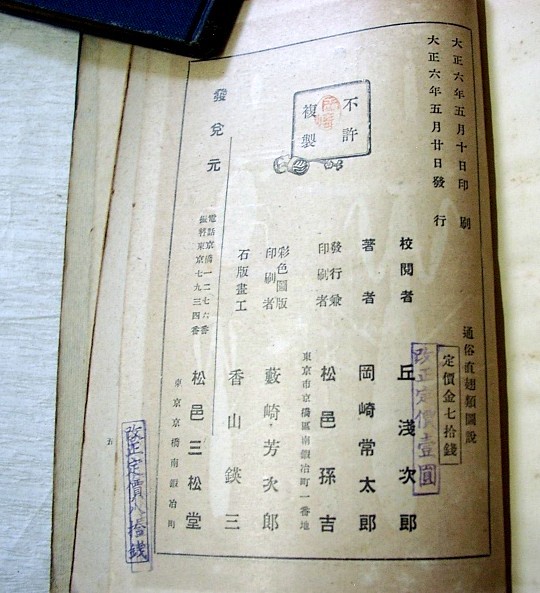 大正六年五月十日印刷
大正六年五月廿日發行
通俗直翅類圖說
定價金七拾錢
改正定價壹圓
不許
複製
校閱者 丘淺次郎
著者 岡崎常太郎
發行兼
印刷者 松邑孫吉
東京市京橋區南鍛冶町一番地
彩色圖版
印刷者 藪崎芳次郎
石版畫工 香山鍈三
發兌元
電話京橋一二七六番
振替東京七九三四番
松邑三松堂
東京京橋南鍛冶町
改正定價八拾錢